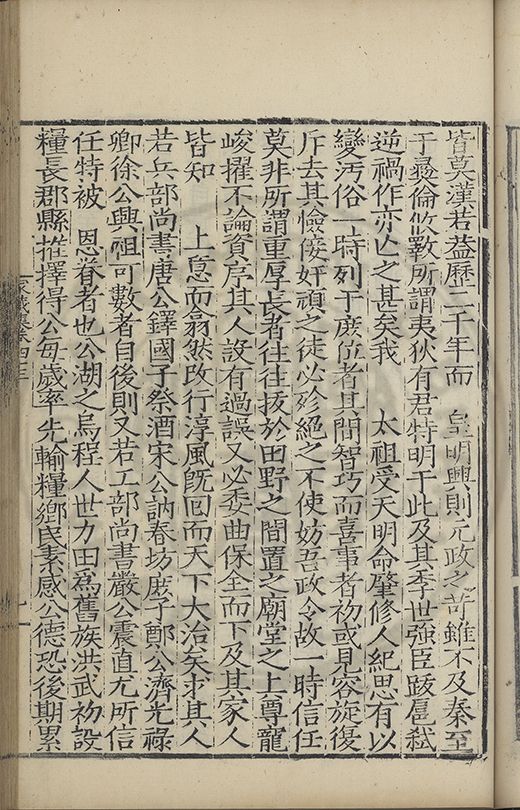 皆莫漢若葢歷二千年而 皇明興則元政之苛雖不及秦至
于彛倫攸斁所謂夷狄有君特明于此及其季世強臣跋扈弑
逆禍作亦亡之甚矣我 太祖受天明命肇修人紀思有以
變汚俗一時列于庶位者其間智巧而喜事者初或見容旋復
斥去其憸佞奸頑之徒必殄絕之不使妨吾政令故一時信任
莫非所謂重厚長者往往抜於田野之間置之廟堂之上尊寵
峻擢不論資序其人設有過誤又必委曲保全而下及其家人
皆知 上意而翕然改行淳風旣囘而天下大治矣求其人
若兵部尚書唐公鐸國子祭酒宋公訥春坊庶子鄭公濟光祿
卿徐公興祖可數者自後則又若工部尚書嚴公震直尤所信
任特被 恩眷者也公湖之烏程人世力田爲舊族洪武初設
糧長郡縣推擇得公每歲率先輸糧鄉民素感公德恐後期累